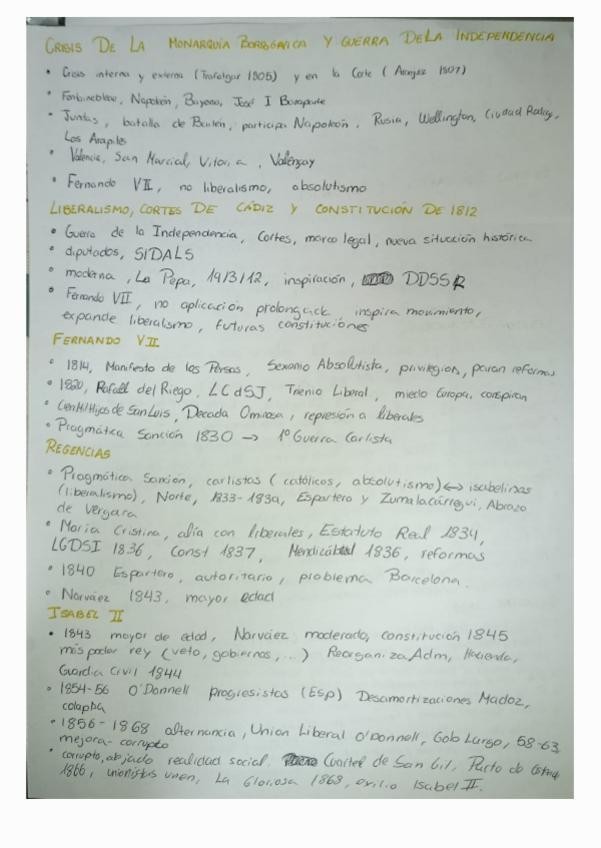 CRISIS DE LA MONARQUÍA BORBÓNICA Y GUERRA DE LA INDEPENDENCIA
• Crisis interna y externa (Trafalgar 1805) y en la Corte (Aranjuez 1807)
• Fontainebleau, Napoleón, Bayona, José I Bonaparte
• Juntas, batalla de Bailén, participa Napoleón, Rusia, Wellington, Ciudad Rodrigo,
Los Arapiles
• Valencia, San Marcial, Vitoria, Valençay
• Fernando VII, no liberalismo, absolutismo
LIBERALISMO, CORTES DE CÁDIZ Y CONSTITUCIÓN DE 1812
• Guerra de la Independencia, Cortes, marco legal, nueva situación histórica
• diputados, SIDALS
• moderna, La Pepa, 19/3/12, inspiración, DDSS
• Fernando VII, no aplicación prolongada inspira movimiento,
expande liberalismo, futuras constituciones
FERNANDO VII
• 1814, Manifiesto de los Persas, Sexenio Absolutista, privilegios, paran reformas
• 1820, Rafael del Riego, LCdSJ, Trienio Liberal, miedo Europa, conspiran
• Cien Mil Hijos de San Luis, Decada Ominosa, represión a liberales
• Pragmática Sanción 1830 → 1º Guerra Carlista
REGENCIAS
• Pragmática Sanción, carlistas (católicos, absolutismo) ↔ isabelinas
(liberalismo), Norte, 1833-1839, Espartero y Zumalacárregui, Abrazo
de Vergara
• María Cristina, alía con liberales, Estatuto Real 1834,
LGDSI 1836, Const 1837, Mendizábal 1836, reformas
• 1840 Espartero, autoritario, problema Barcelona.
• Narváez 1843, mayor edad
ISABEL II
• 1843 mayor de edad, Narváez moderado, constitución 1845
más poder rey (veto, gobiernos, ...) Reorganiza Adm, Hacienda,
Guardia Civil 1844
• 1854-56 O'Donnell progresistas (Esp) Desamortizaciones Madoz,
colapsa
• 1856-1868 alternancia, Union Liberal O'Donnell, Gob Largo, 58-63
mejora - corrupto
• corrupto, alejado realidad social. Cuartel de San Gil, Pacto de
1866, unionistas unen, La Gloriosa 1868, exilio Isabel II.